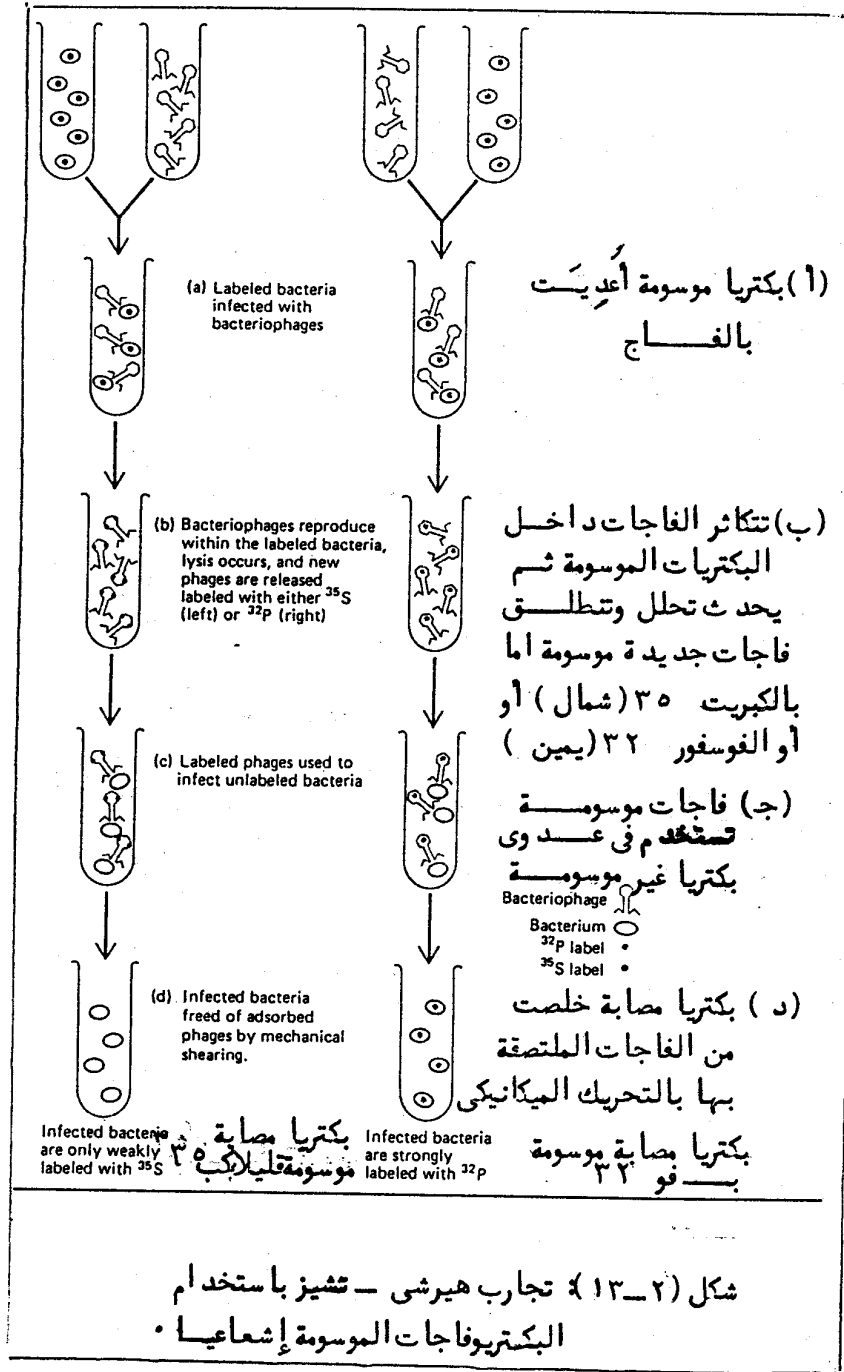 (a) Labeled bacteria
infected with
bacteriophages
(أ) بكتريا موسومة أُعدِيَت
بالفــاج
(b) Bacteriophages reproduce
within the labeled bacteria,
lysis occurs, and new
phages are released
labeled with either ³⁵S
(left) or ³²P (right)
(ب) تتكاثر الفاجات داخل
البكتريات الموسومة ثم
يحدث تحلل وتنطلق
فاجات جديدة موسومة اما
بالكبريت ٣٥ (شمال) أو
أو الفوسفور ٣٢ (يمين)
(c) Labeled phages used to
infect unlabeled bacteria
(جـ) فاجات موسومة
تستخدم فى عدوى
بكتريا غير موسومة
Bacteriophage
Bacterium
³²P label
³⁵S label
(d) Infected bacteria
freed of adsorbed
phages by mechanical
shearing.
(د) بكتريا مصابة خلصت
من الفاجات الملتصقة
بها بالتحريك الميكانيكى
Infected bacteria
are only weakly
labeled with ³⁵S
بكتريا مصابة
موسومة قليلا بكب ٣٥
Infected bacteria
are strongly
labeled with ³²P
بكتريا مصابة موسومة
بـ فو ٣٢
شكل (٢ــ١٣): تجارب هيرشى ــ تشيز باستخدام
البكتريوفاجات الموسومة إشعاعيا .